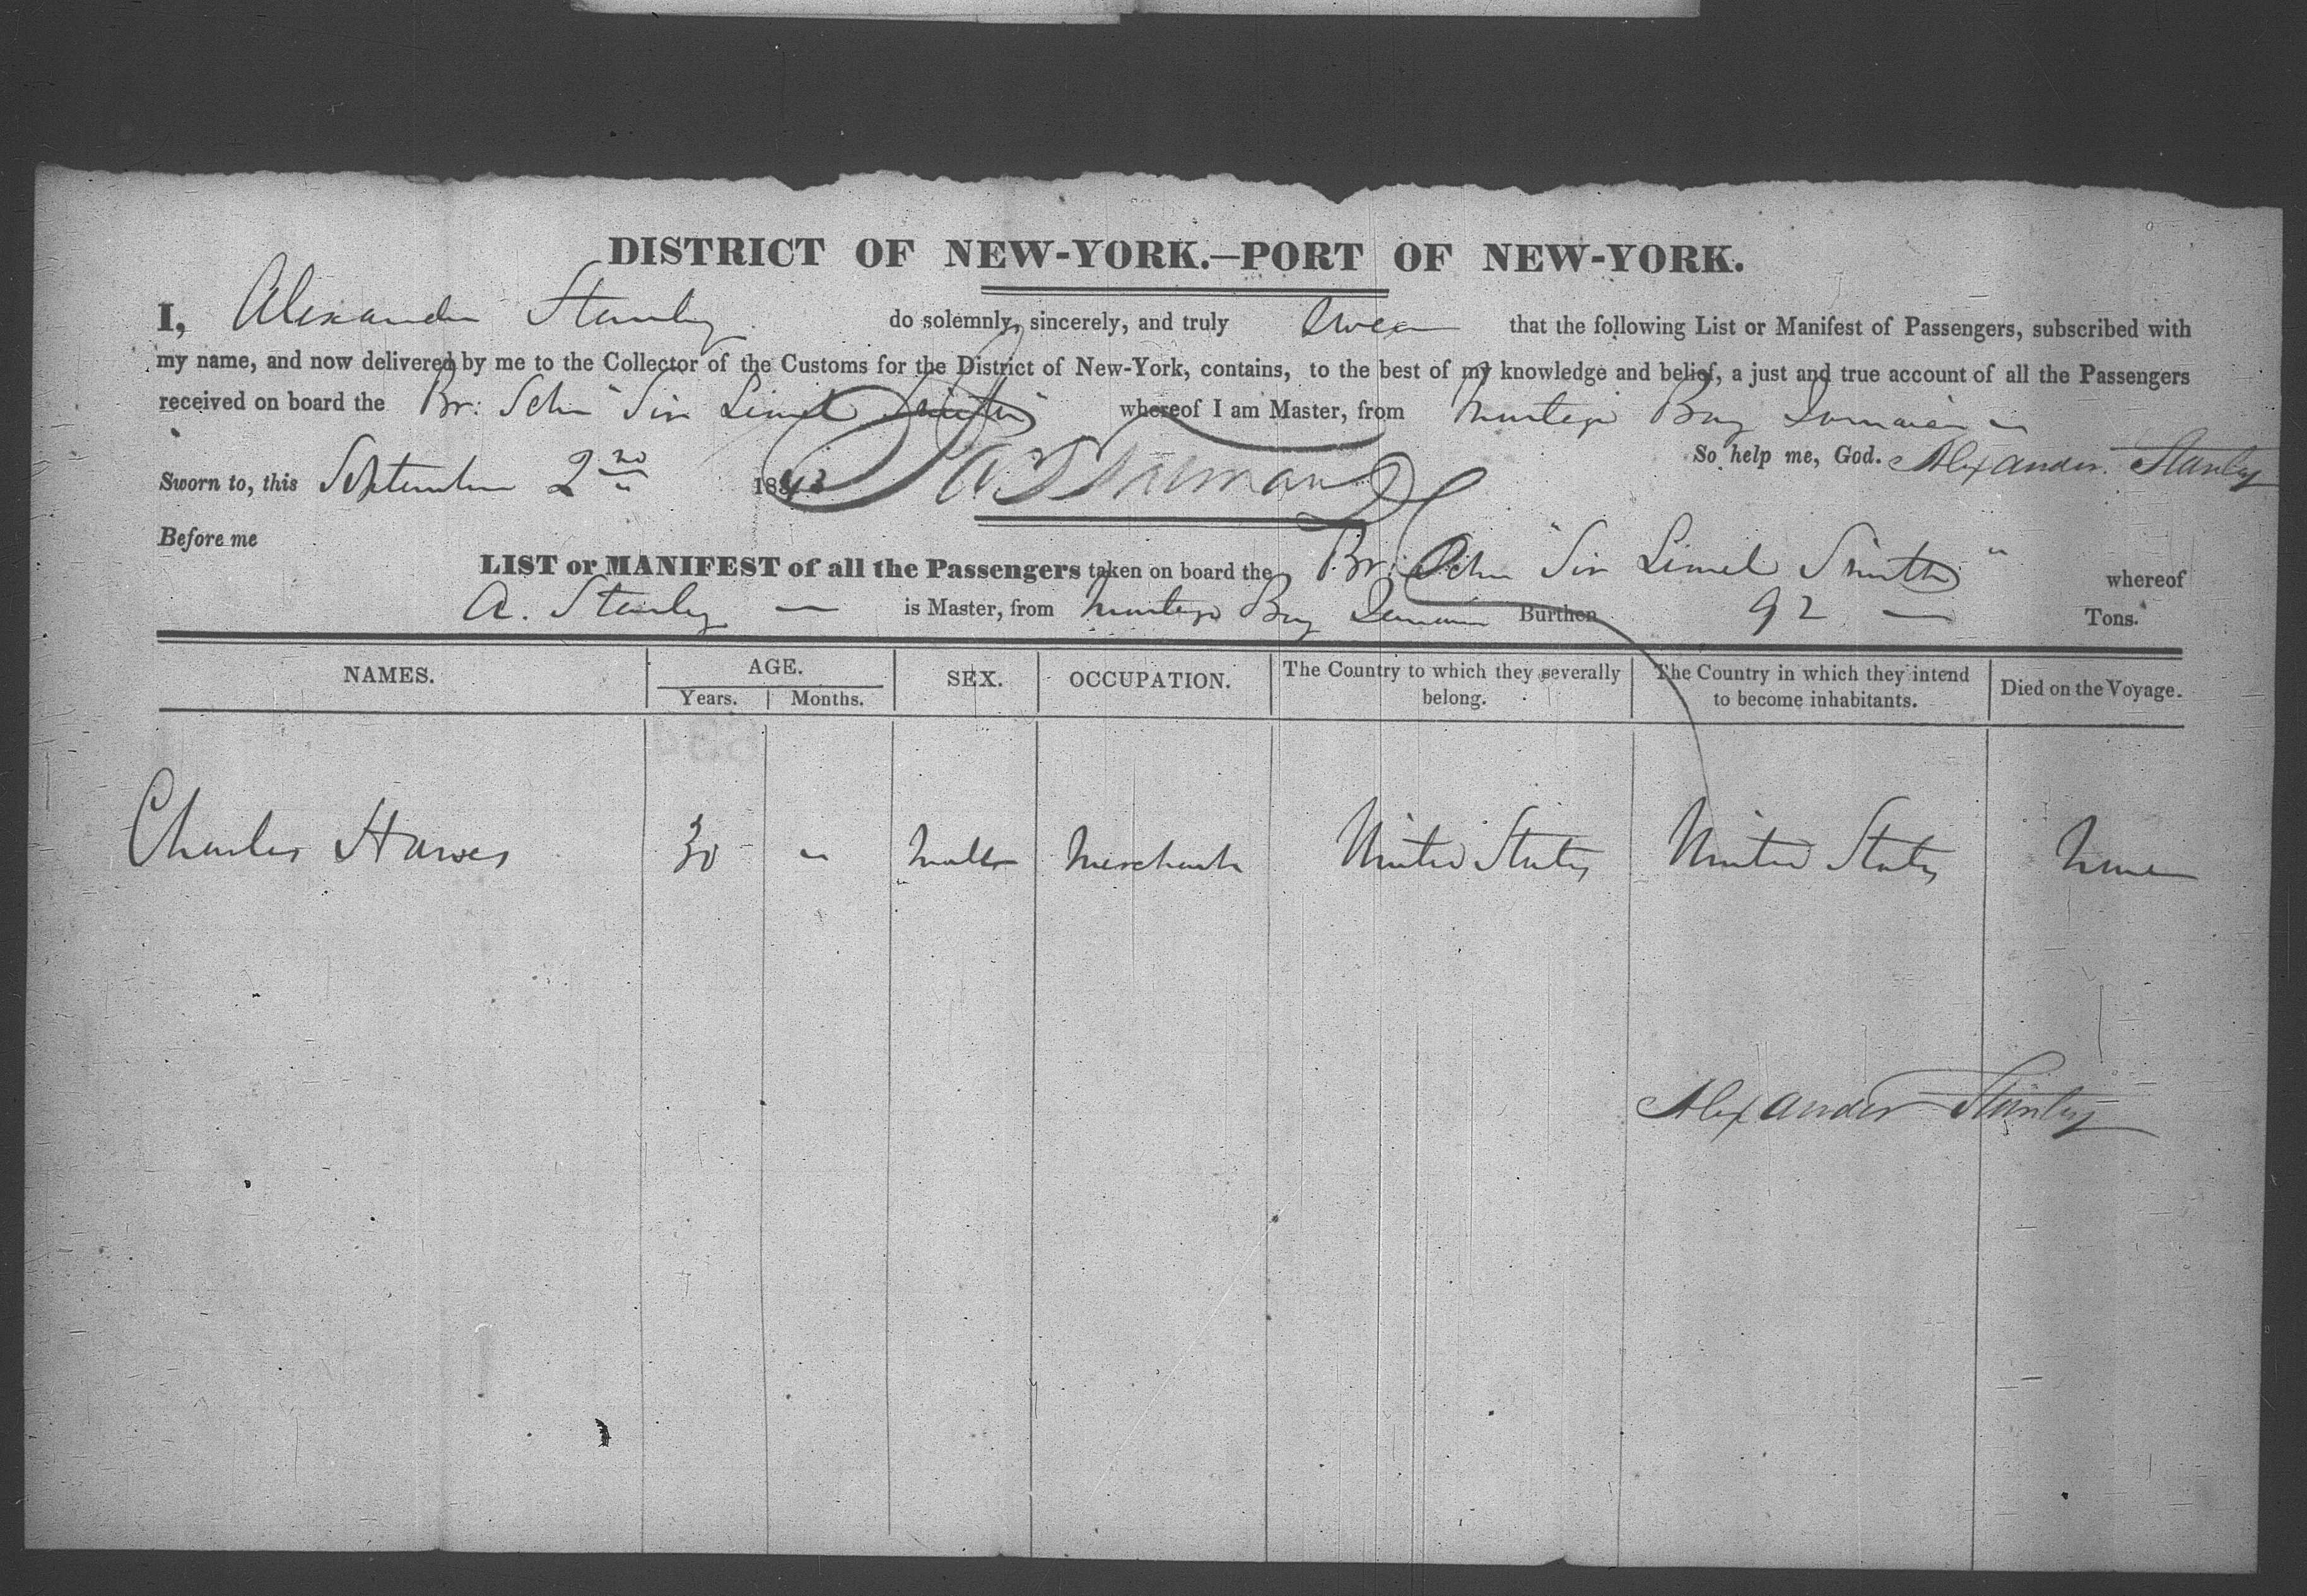 DISTRICT OF NEW-YORK.—PORT OF NEW-YORK.
I, Alexander Stanley do solemnly, sincerely, and truly swear that the following List or Manifest of Passengers, subscribed with
my name, and now delivered by me to the Collector of the Customs for the District of New-York, contains, to the best of my knowledge and belief, a just and true account of all the Passengers
received on board the Br: Schr "Sir Lionel Smith" whereof I am Master, from Montego Bay Jamaica
So help me, God. Alexander Stanley
Sworn to, this September 2nd 1843
Before me
LIST or MANIFEST of all the Passengers taken on board the Br: Schr "Sir Lionel Smith" whereof
A. Stanley — is Master, from Montego Bay Jamaica Burthen 92 — Tons.
NAMES. AGE. SEX. OCCUPATION. The Country to which they severally belong. The Country in which they intend to become inhabitants. Died on the Voyage.
Years. Months.
Charles Hawes 30 " Male Merchant United States United States None
Alexander Stanley